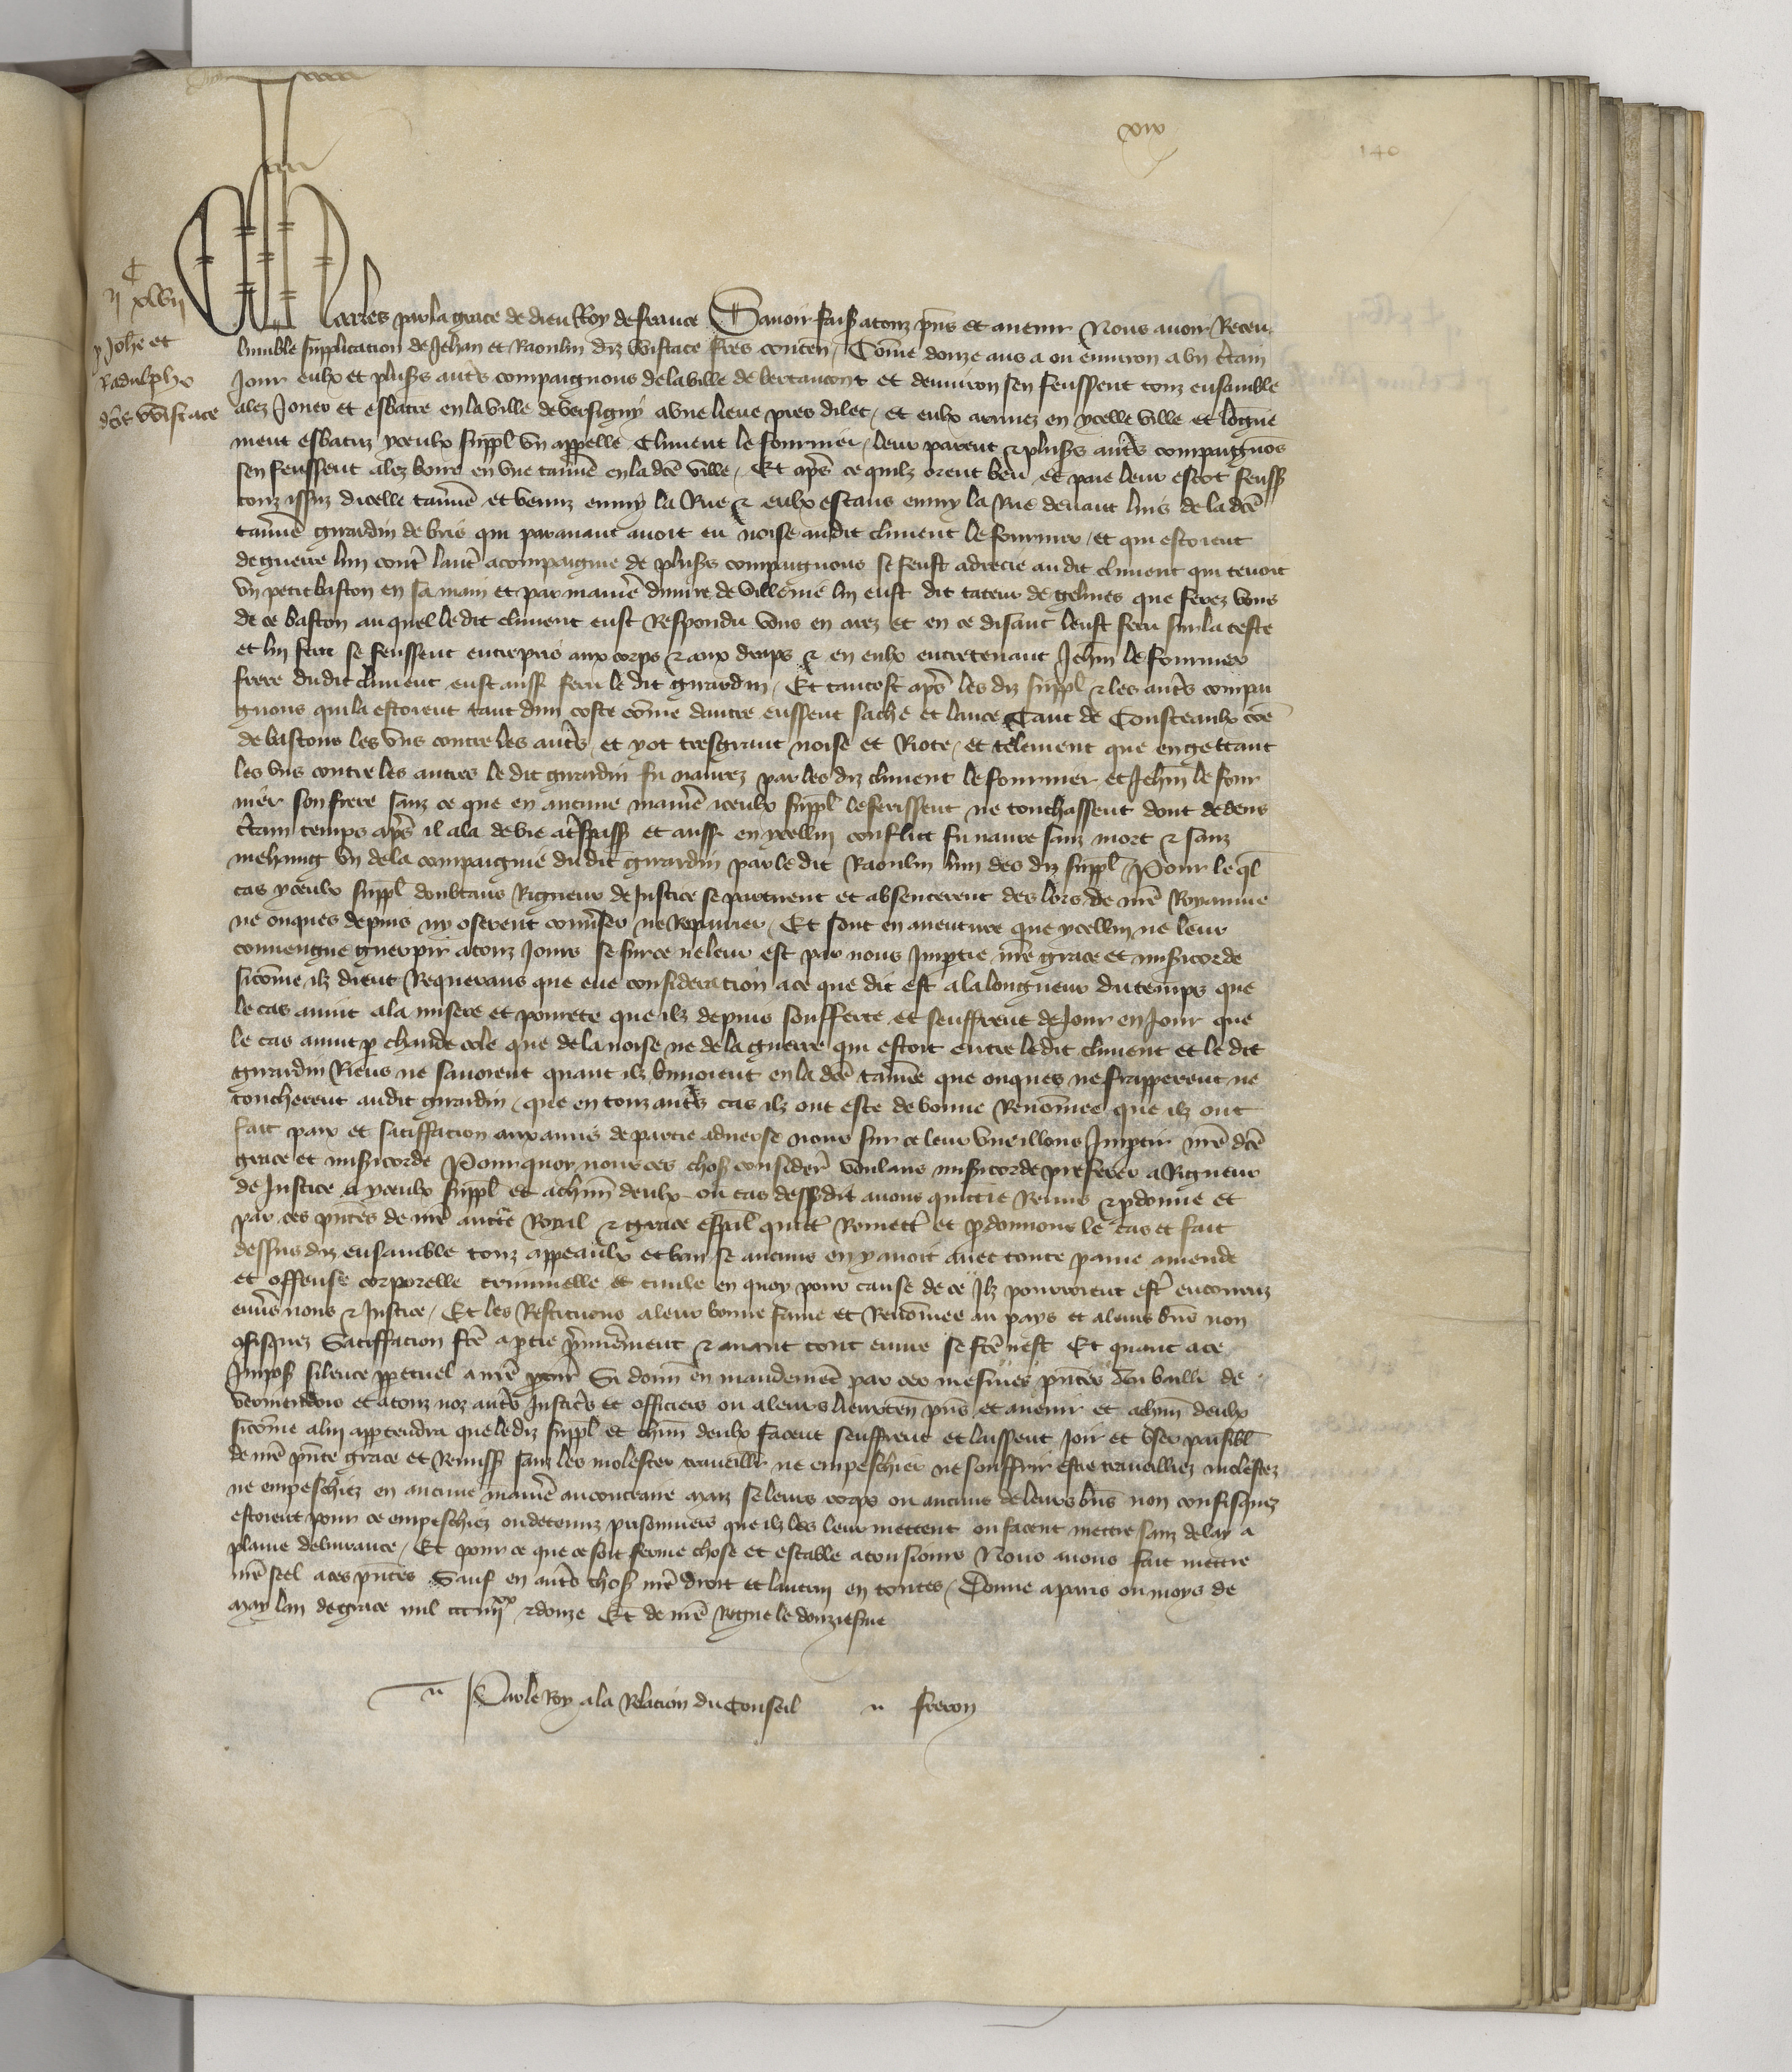 xiv
140
C
ii xlvii
p Johe et
Radulpho
dcis Wistace
Charles par la grace de dieu Roy de france Savoir faiss a touz pns et avenir Nous avoir Receu
lumble supplicacion de Jehan et Raoulin diz Wistace freres conten / Come douze ans a ou environ a un ctain
Jour eulx et pluss autres compaignons de la ville de bertaucourt et denviron sen feussent touz ensamble
alez Jouer et esbatre en la ville de versigny a une lieue pres dilec / et eulx arrivez en ycelle ville et logue
ment esbatuz yceulx suppl un appelle Climent le fournier / leur parent & pluss autres compaignos
sen feussent alez boire en une taverne en la dce ville / Et apres ce quilz orent beu et paie leur escot feuss
touz issuz dicelle taverne et venuz enmy la Rue & eulx estans enmy la Rue devant luis de la dce
taverne girardin de bris qui paravant avoit eu noise audit climent le fournier / et qui estoient
de guerre lun contre lautre acompaignie de pluss compaignons se feust adrecie audit climent qui tenoit
un petit baston en sa main et par maniere dinjure de villenie lui eust dit tateur de gelines que ferez vous
de ce baston auquel ledit climent eust Respondu vous en arez et en ce disant leust feru sur la teste
et lui feru se feussent entrepris aux corps & aux draps & en eulx entretenant Jehan le fournier
frere dudit climent eust aussi feru le dit girardin / Et tantost apres les diz suppl & les autres compai
gnons qui la estoient tant dun coste come dautre eussent sachie et lance Tant de Cousteaulx come
de bastons les uns contre les autres et y ot tresgrant noise et Riote / et telement que en gettant
les uns contre les autres le dit girardin fu navrez par les diz climent le fournier et Jehan le four
nier son frere sanz ce que en aucune maniere iceulx suppl le ferissent ne touchassent dont dedens
ctain temps apres il ala de vie a trespass et aussi en ycellui conflict fu navre sanz mort & sanz
mehaing un de la compaignie dudit girardin par le dit Raoulin lun des diz suppl / Pour le ql
cas yceulx suppl doubtans Rigueur de Justice se partirent et absenterent des lors de nre Royaume
ne onques depuis ny oserent converser ne Repairier / Et sont en aventure que ycellui ne leur
conviengne guerpir a touz Jours se sur ce ne leur est par nous Impartie nre grace et misericorde
sicome ilz dient Requerans que eue consideracion a ce que dit est a la longueur du temps que
le cas avint a la misere et povrete que ilz depuis soufferte et seuffrent de Jour en Jour que
le cas avint p chaude cole que de la noise ne de la guerre qui estoit entre ledit climent et le dit
girardin Riens ne savoient quant ilz buvoient en la dce taverne que onques ne frapperent ne
toucherent audit girardin / que en touz autres cas ilz ont este de bonne Renomee que ilz ont
fait paix et satiffacion aux amis de partie adverse nous sur ce leur vueillons Impartir nre dce
grace et misericorde Pourquoy nous ces choss considere voulans misericorde preferer a Rigueur
de Justice a yceulx suppl et a chun deulx ou cas dessusdit avons quittie Remis & pdonne et
par ces pntes de nre aucte Royal & grace espal quitt Remett et pdonnons le cas et fait
dessus diz ensamble touz appeaulx et ban se aucuns en y avoit avec toute paine amende
et offense corporelle criminelle et civile en quoy pour cause de ce Ilz pourroient estre encouruz
envers nous & Justice / Et les Restituons a leur bonne fame et Renomee au pays et a leurs bns non
gfisquez Satiffacion fce a ptie premierement & avant tout euvre se fce nest Et quant a ce
Imposs silence ppetuel a nre procur Si donn en mandement par ces mesmes pntes au bailli de
vermendois et a touz noz autres Justicrs et officiers ou a leurs lieuxten pns et avenir et a chun deulx
sicome a lui appartendra que lediz suppl et chun deulx facent seuffrent et laissent Joir et user paisibl
de nre pnte grace et Remiss sanz les molester travaillir ne empeschier ne souffrir estre travailliez molestez
ne empeschiez en aucune maniere au contraire maiz se leurs corps ou aucuns de leurs bns non confisquez
estoient pour ce empeschiez ou detenuz prisonniers que ilz les leur mettent ou facent mettre sanz delay a
plaine delivrance / Et pour ce que ce soit ferme chose et estable a tousiours Nous avons fait mettre
nre seel a ces pntes Sauf en autres choss nre droit et lautrui en toutes / Donne a paris ou moys de
may lan de grace mil ccc iiijxx & douze Et de nre Regne le douziesme
Par le Roy a la Relacion du Conseil
freron